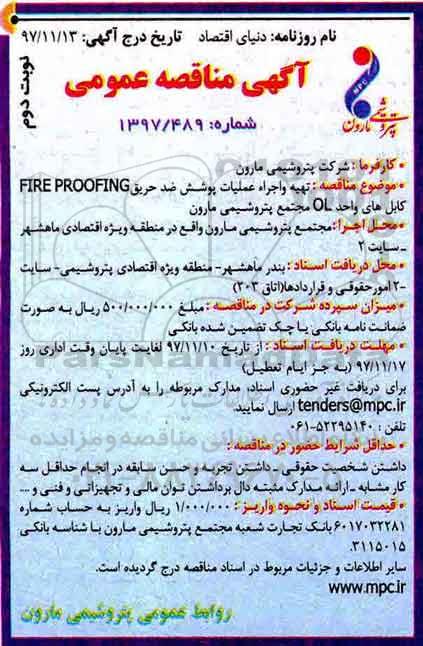 نام روزنامه: دنیای اقتصاد تاریخ درج آگهی: ۹۷/۱۱/۱۳
نوبت دوم
آگهی مناقصه عمومی
MPC
پتروشیمی مارون
شماره: ۱۳۹۷/۴۸۹
• کارفرما: شرکت پتروشیمی مارون
• موضوع مناقصه: تهیه واجراء عملیات پوشش ضد حریق FIRE PROOFING
کابل های واحد OL مجتمع پتروشیمی مارون
• محل اجرا: مجتمع پتروشیمی مارون واقع در منطقه ویژه اقتصادی ماهشهر
ـ سایت ۲
• محل دریافت اسناد: بندر ماهشهر- منطقه ویژه اقتصادی پتروشیمی- سایت
۲- امورحقوقی و قراردادها(اتاق ۲۰۳)
• میزان سپرده شرکت در مناقصه: مبلغ ۵۰۰/۰۰۰/۰۰۰ ریال به صورت
ضمانت نامه بانکی یا چک تضمین شده بانکی
• مهلت دریافت اسناد: از تاریخ ۹۷/۱۱/۱۰ لغایت پایان وقت اداری روز
۹۷/۱۱/۱۷ (به جز ایام تعطیل)
برای دریافت غیر حضوری اسناد، مدارک مربوطه را به آدرس پست الکترونیکی
tenders@mpc.ir ارسال نمایید.
تلفن: ۵۲۲۹۵۱۴۰-۰۶۱
• حداقل شرایط حضور در مناقصه:
داشتن شخصیت حقوقی ـ داشتن تجربه و حسن سابقه در انجام حداقل سه
کار مشابه ـ ارائه مدارک مثبته دال برداشتن توان مالی و تجهیزاتی و فنی و ...
• قیمت اسناد و نحوه واریز: ۱/۰۰۰/۰۰۰ ریال واریز به حساب شماره
۶۰۱۷۰۳۲۲۸۱ بانک تجارت شعبه مجتمع پتروشیمی مارون با شناسه بانکی
۳۱۱۵۰۱۵.
سایر اطلاعات و جزئیات مربوط در اسناد مناقصه درج گردیده است.
www.mpc.ir
روابط عمومی پتروشیمی مارون